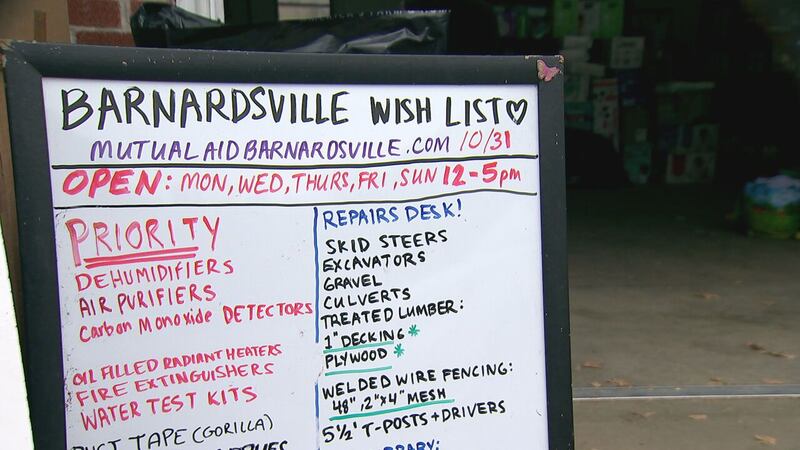 BARNARDSVILLE WISH LIST♡
MUTUALAIDBARNARDSVILLE.COM 10/31
OPEN: MON, WED, THURS, FRI, SUN 12-5pm
PRIORITY
DEHUMIDIFIERS
AIR PURIFIERS
Carbon Monoxide DETECTORS
OIL FILLED RADIANT HEATERS
FIRE EXTINGUISHERS
WATER TEST KITS
DUCT TAPE (GORILLA)
REPAIRS DESK!
SKID STEERS
EXCAVATORS
GRAVEL
CULVERTS
TREATED LUMBER:
1" DECKING *
PLYWOOD *
WELDED WIRE FENCING:
48", 2"x4" MESH
5½' T-POSTS + DRIVERS